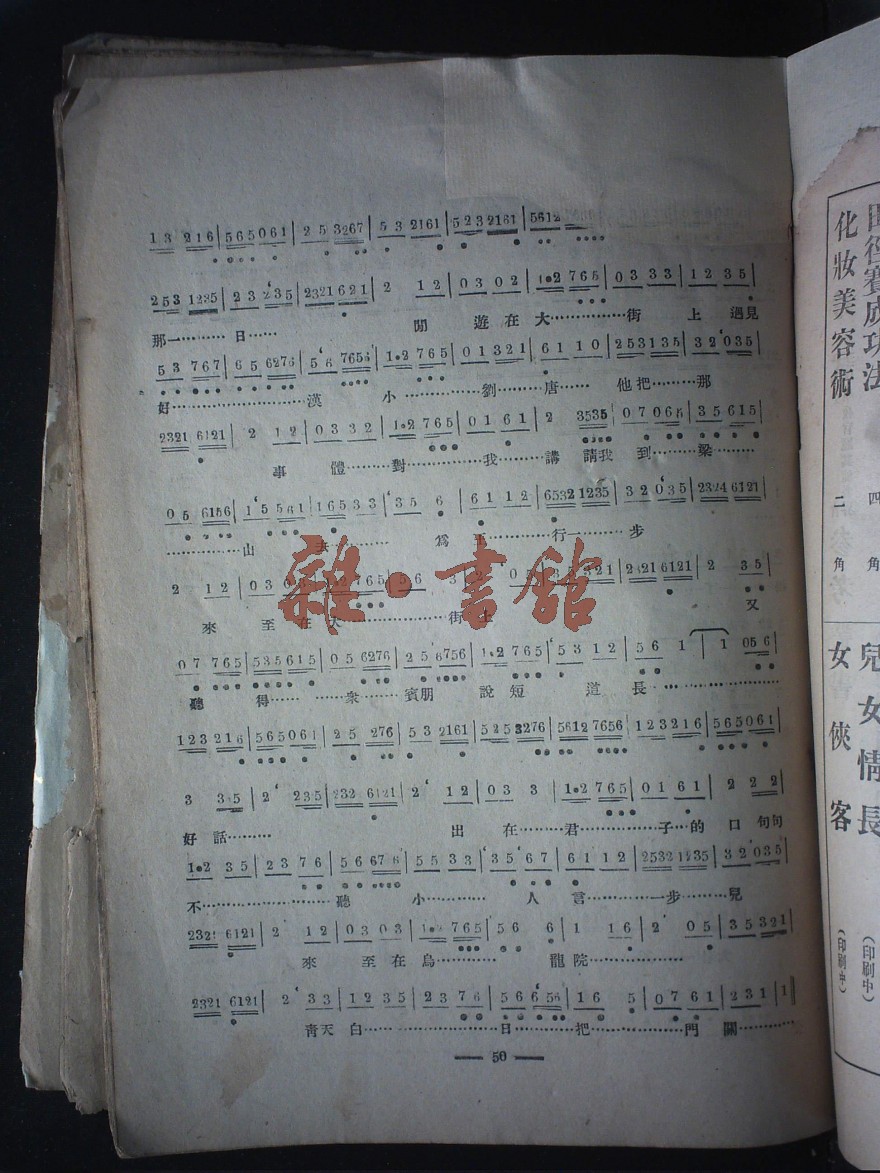 13 216|565061|25 3267|53 2161|523 2161|5612
253 1235|23 235|2321 621|2 12|03 02|1•2 765|03 33|1235|
那一………日…… 閒 遊在大…………街 上遇見
53 767|65 6276|56 7656|1•2 765|01321|61 10|253135|32 035|
好………………漢 小…………劉……唐…… 他把……那
2321 6121|2 12|0332|1•2 765|01 61|2 3535|07065|35615|
事 體………對………我……講 請我 到………梁………
05 6156|15 561|16533|35 6|61 12|6532 1235|32 035|2324 6121|
…………山 去………… 爲 王………行………步
來 至 在 大…………街 上 又
07 765|535615|05 6276|25 6756|1•2 765|53 12|56 1|1 056|
聽 得……………衆………賓朋 說 短 道 長…………………
123216|565061|25 276|53 2161|525 3276|5612 7656|123216|565061|
3 35|2 235|232 6121|2 12|03 3|1•2 765|01 61|2 22|
好 話……… 出 在………君…………子…的 口 句句
1•2 35|23 76|56 676|55 33|35 67|61 12|2532 1235|32 035|
不……………………聽 小…………… 人 言…………一步……見
2321 6121|2 12|03 03|1•2 765|56 6|1 16|2 05|35321|
來 至在 烏…………龍 院………………
2321 6121|2 33|1235|23 76|56 656|16 5|07 61|231 1‖
靑天 白…………………日…………把………………門 關…………
— 50 —
雜•書館
田徑賽成功法 四角
化妝美容術 二角
兒女情長 (印刷中)
女俠客 (印刷中)